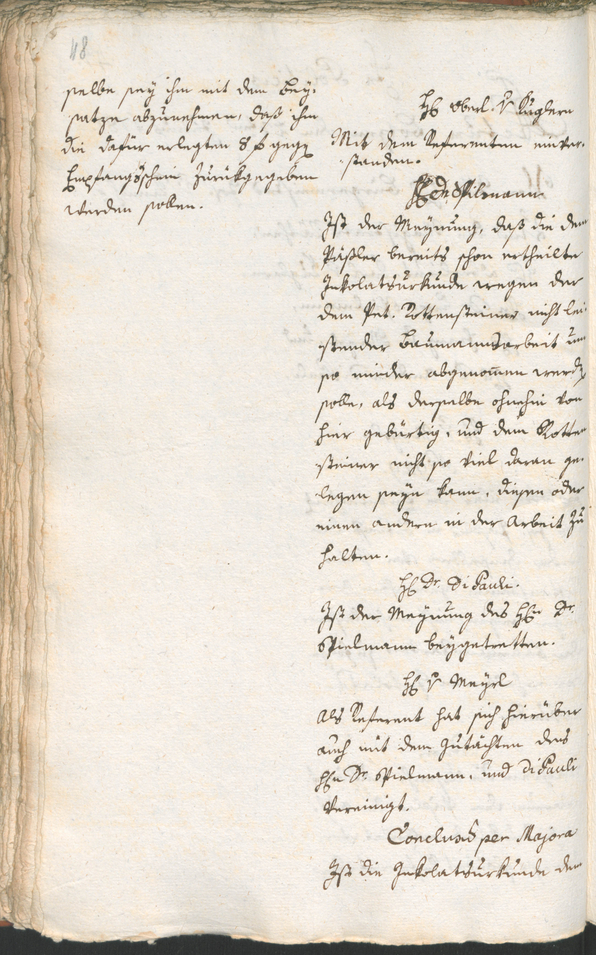 48
selbe sey ihm mit dem Bey-
satze abzunehmen, daß ihm
die dafür erlegten 8 f gegen
Empfangsschein zurückgegeben
werden sollen.
H. Oberl. v Kuglern
Mit dem Referenten einver-
standen.
H. Dr. Spilmann
Ist der Meynung, daß die dem
Päßler bereits schon ertheilte
Inkolatsurkunde wegen der
dem Pet. Rottensteiner nicht lei-
stender Baumannsarbeit um
so minder abgenommen werden
solle, als derselbe ohnehin von
hier gebürtig, und dem Rotten
steiner nicht so viel daran ge-
legen seyn kann, diesen oder
einen andern in der Arbeit zu
halten.
H. Dr. Di Pauli.
Ist der Meynung des Hn Dr.
Spielmann beygetretten.
H. v Meyrl
Als Referent hat sich hierüber
auch mit dem Gutachten des
Hn Dr. Spielmann, und Di Pauli
vereinigt.
Conclus per Majora
Ist die Inkolatsurkunde dem